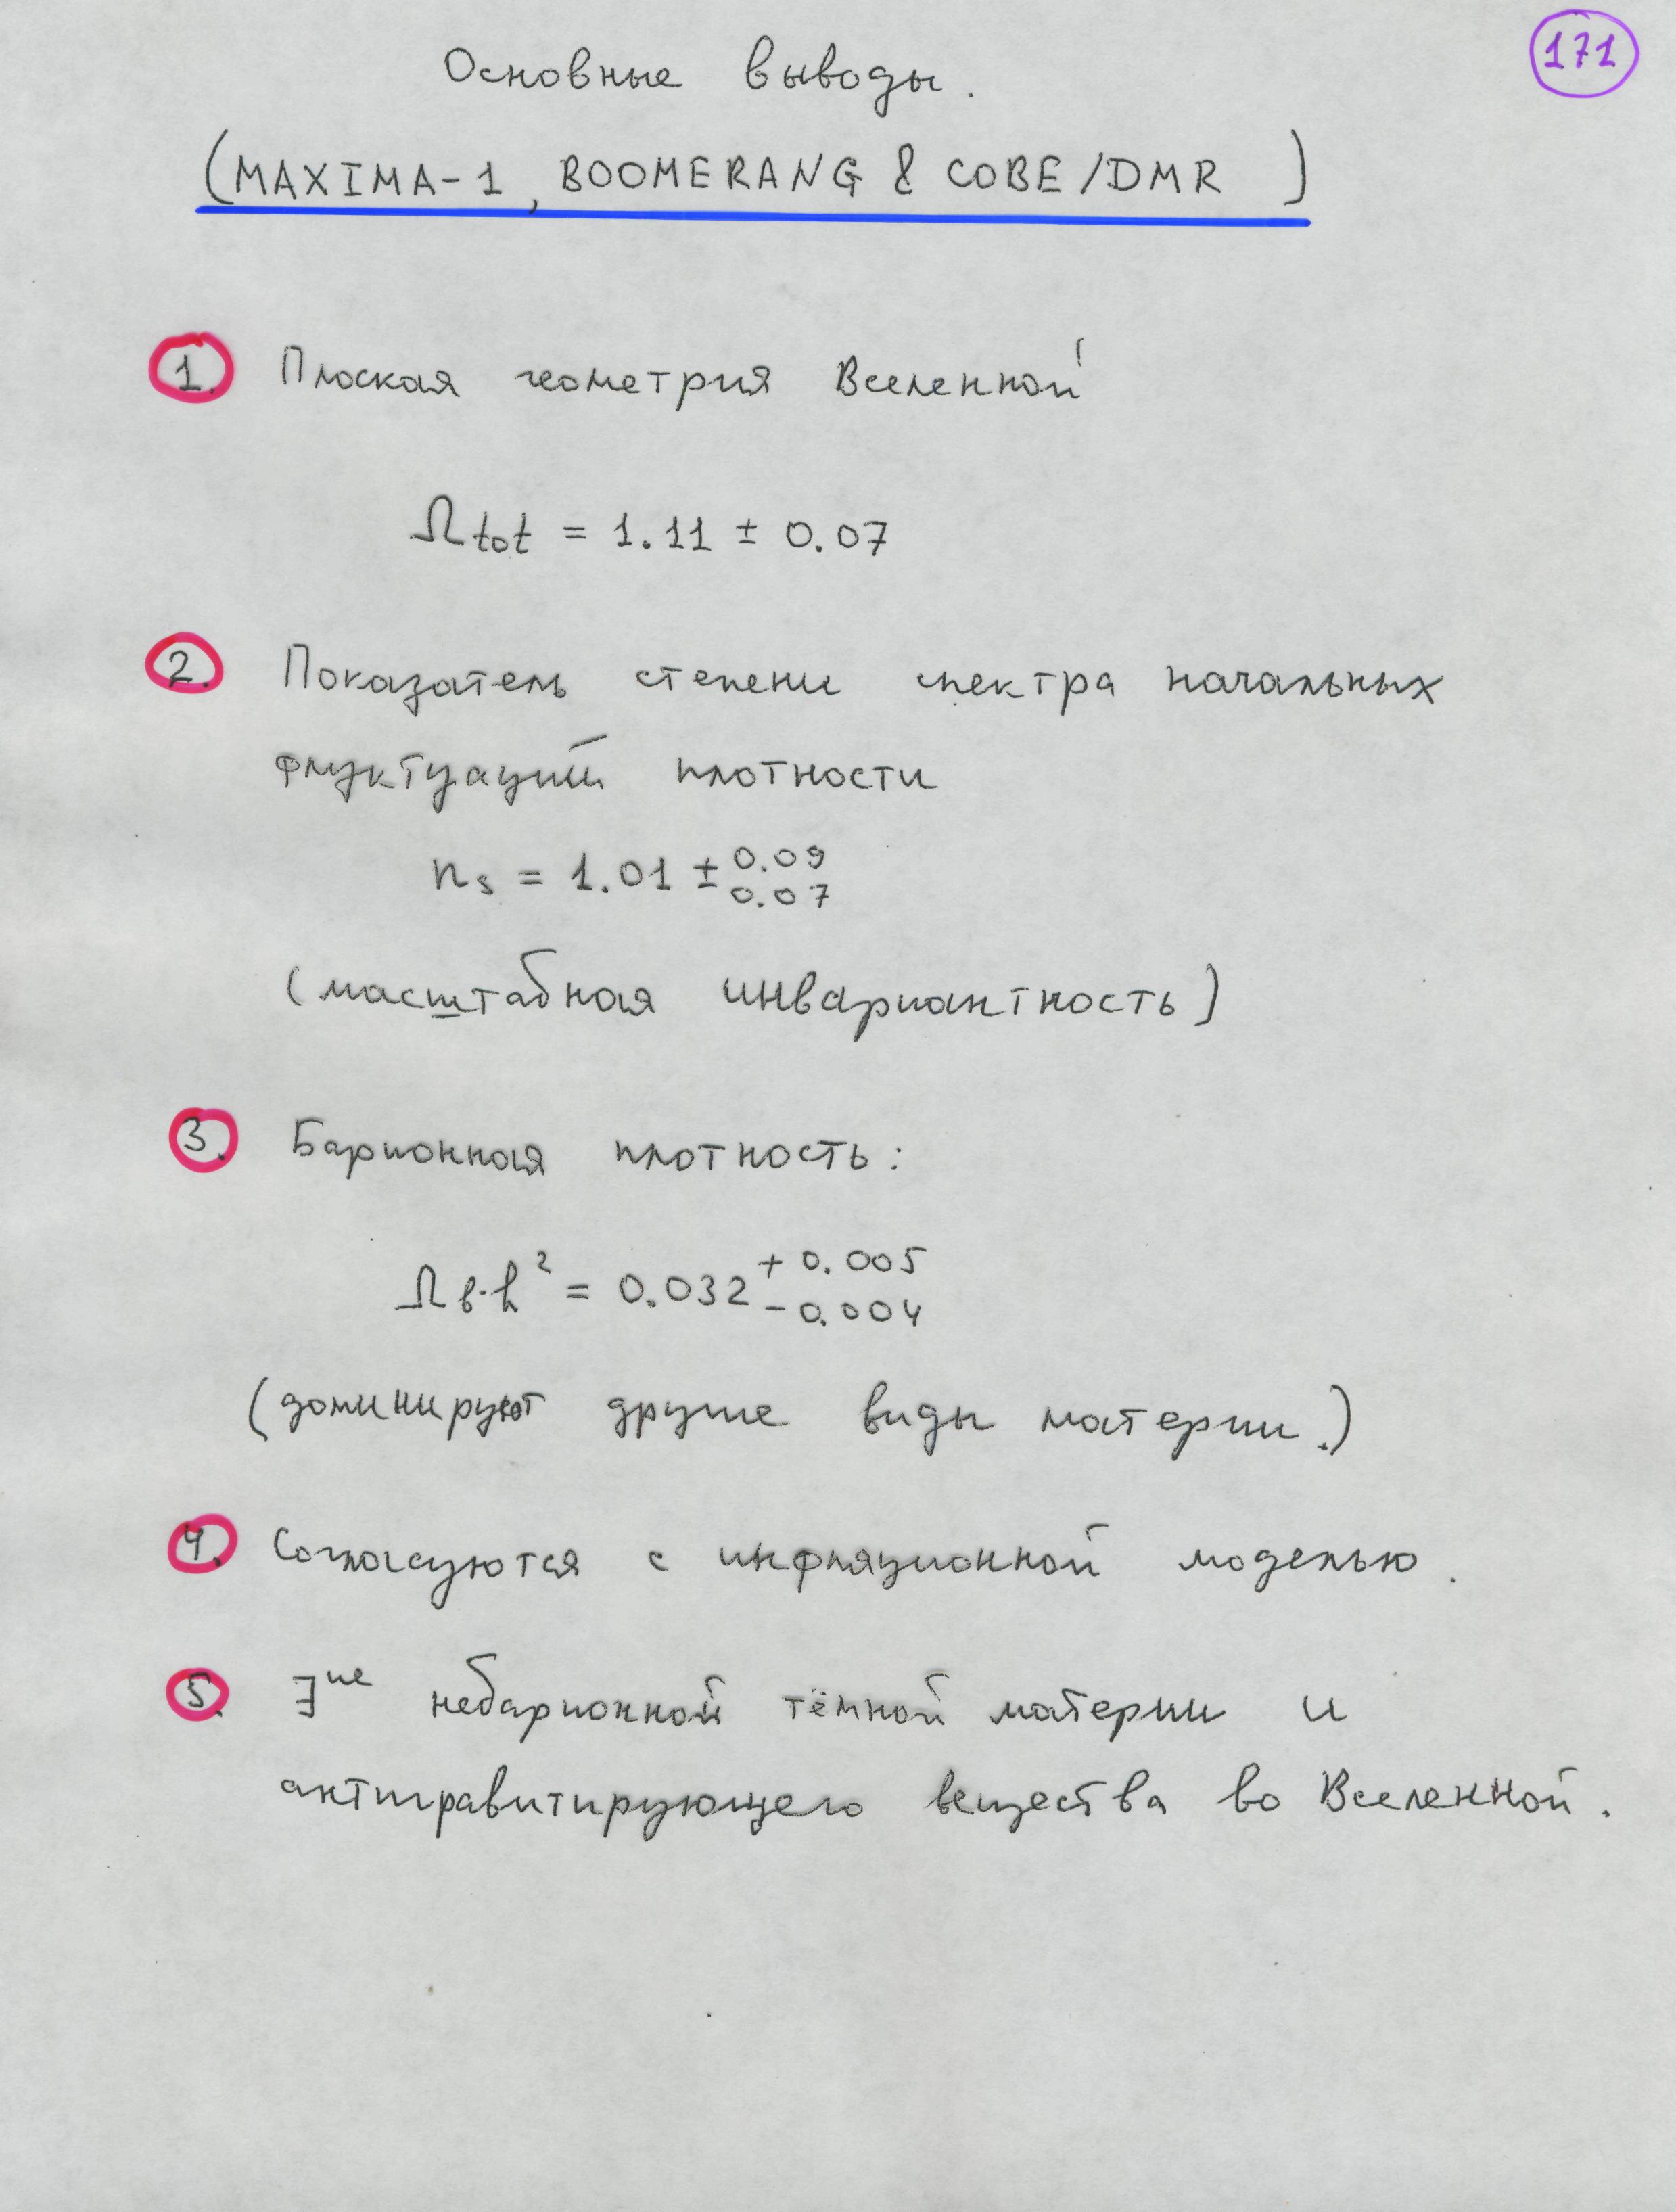 171
Основные выводы.
(MAXIMA-1, BOOMERANG & COBE/DMR )
1. Плоская геометрия Вселенной
Ωtot = 1.11 ± 0.07
2. Показатель степени спектра начальных
флуктуаций плотности
ns = 1.01 ± 0.09 0.07
(масштабная инвариантность)
3. Барионная плотность:
Ωв·h² = 0.032 + 0.005 - 0.004
(доминируют другие виды материи.)
4. Согласуются с инфляционной моделью.
5. ∃ие небарионной тёмной материи и
антигравитирующего вещества во Вселенной.